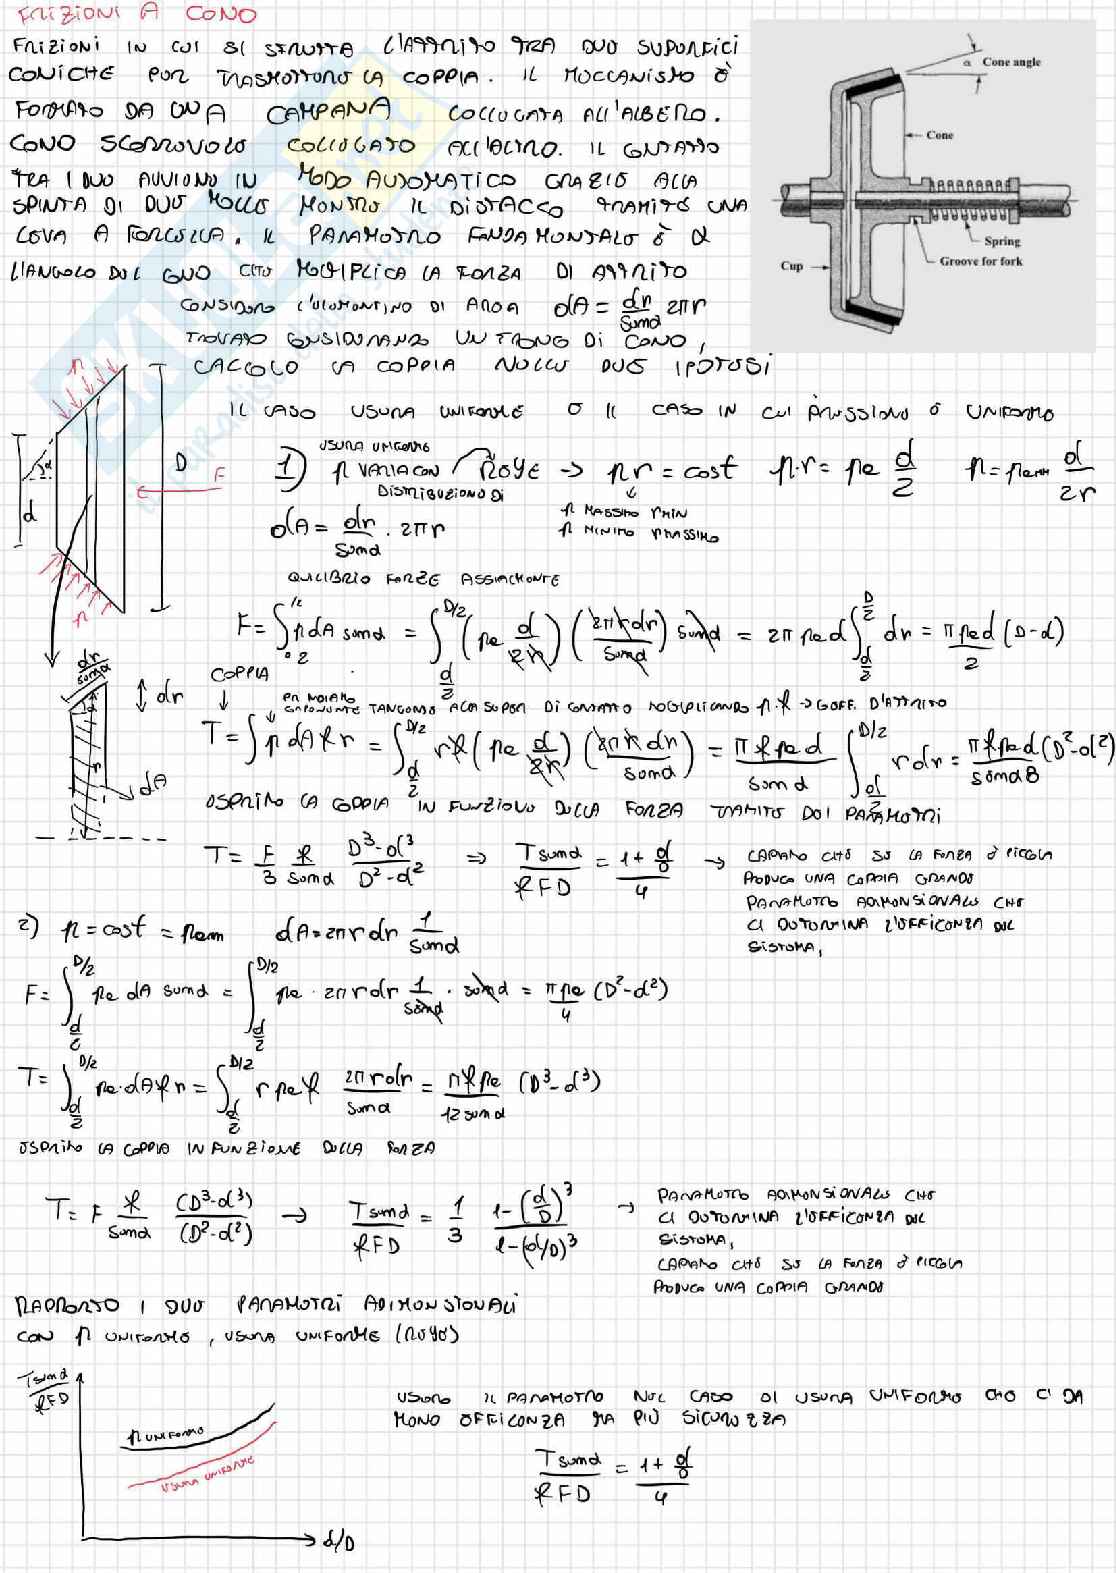 FRIZIONI A CONO
FRIZIONI IN CUI SI SFRUTTA L'ATTRITO TRA DUE SUPERFICI
CONICHE PER TRASMETTERE LA COPPIA. IL MECCANISMO È
FORMATO DA UNA CAMPANA COLLEGATA ALL'ALBERO.
CONO SCORREVOLE COLLEGATO ALL'ALTRO. IL CONTATTO
TRA I DUE AVVIENE IN MODO AUTOMATICO GRAZIE ALLA
SPINTA DI DUE MOLLE MENTRE IL DISTACCO TRAMITE UNA
LEVA A FORCELLA. IL PARAMETRO FONDAMENTALE È α
L'ANGOLO DEL CONO CHE MOLTIPLICA LA FORZA DI ATTRITO
α Cone angle
Cone
Spring
Groove for fork
Cup
CONSIDERO L'ELEMENTINO DI AREA dA = dr/senα 2πr
TROVATO CONSIDERANDO UN TRONCO DI CONO,
CALCOLO LA COPPIA NELLE DUE IPOTESI
IL CASO USURA UNIFORME E IL CASO IN CUI PRESSIONE È UNIFORME
p
d
α
D
F
p
1) USURA UNIFORME p VARIA CON REYE → pr = cost p·r = pa d/2 p = pamm d/2r
DISTRIBUZIONE DI
dA = dr/senα · 2πr
p MASSIMO rMIN
p MINIMO rMASSIMO
EQUILIBRIO FORZE ASSIALMENTE
F = ∫ p dA senα = ∫_{d/2}^{D/2} (pa d/2r) (2πr dr/senα) senα = 2π pa d ∫_{d/2}^{D/2} dr = π pa d/2 (D-d)
dr/senα
dr
dA
COPPIA
PRENDIAMO COMPONENTE TANGENTE ALLA SUPER. DI CONTATTO MOLTIPLICANDO p·f → COEFF. D'ATTRITO
T = ∫ p dA f r = ∫_{d/2}^{D/2} r f (pa d/2r) (2πr dr/senα) = π f pa d/senα ∫_{d/2}^{D/2} r dr = π f pa d/senα8 (D²-d²)
ESPRIMO LA COPPIA IN FUNZIONE DELLA FORZA TRAMITE DEI PARAMETRI
T = F/3 f/senα D³-d³/D²-d² ⇒ Tsenα/fFD = 1+d/D/4 → CAPIAMO CHE SE LA FORZA È PICCOLA
PRODUCE UNA COPPIA GRANDE
PARAMETRO ADIMENSIONALE CHE
CI DETERMINA L'EFFICENZA DEL
SISTEMA,
2) p = cost = pamm dA = 2πr dr 1/senα
F = ∫_{d/2}^{D/2} pa dA senα = ∫_{d/2}^{D/2} pa · 2πr dr 1/senα · senα = π pa/4 (D²-d²)
T = ∫_{d/2}^{D/2} pa·dA f r = ∫_{d/2}^{D/2} r pa f 2πr dr/senα = π f pa/12 senα (D³-d³)
ESPRIMO LA COPPIA IN FUNZIONE DELLA FORZA
T = F f/senα (D³-d³)/(D²-d²) → Tsenα/fFD = 1/3 1-(d/D)³/1-(d/D)³ → PARAMETRO ADIMENSIONALE CHE
CI DETERMINA L'EFFICENZA DEL
SISTEMA,
CAPIAMO CHE SE LA FORZA È PICCOLA
PRODUCE UNA COPPIA GRANDE
RAPPORTO I DUE PARAMETRI ADIMENSIONALI
CON p UNIFORME, USURA UNIFORME (REYE)
Tsenα/fFD
p UNIFORME
USURA UNIFORME
d/D
USIAMO IL PARAMETRO NEL CASO DI USURA UNIFORME CHE CI DA
MENO EFFICENZA MA PIÙ SICUREZZA
Tsenα/fFD = 1+d/D/4